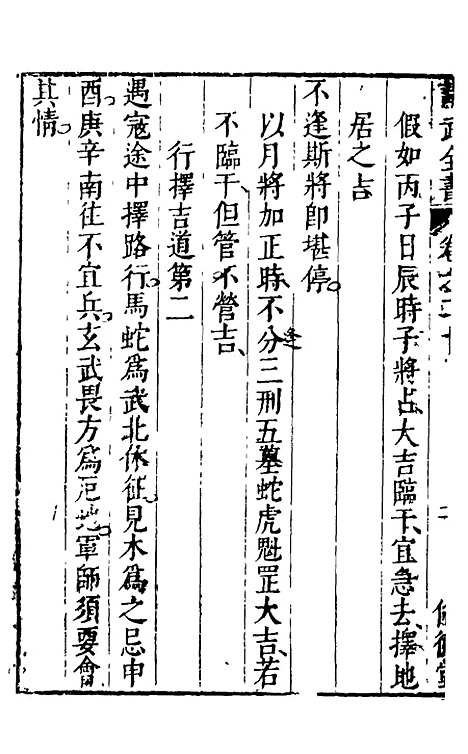 武全書 卷 二
假如丙子日辰時子將占大吉臨干、宜急去、擇地
居之吉
不逢斯將卽堪停。
以月將加正時、不分逢三刑五墓蛇虎魁罡大吉、若
不臨干但管不營吉、
行擇吉道第二
遇寇途中擇路行。馬蛇爲武北休征。見木爲之忌申
酉。庚辛南往不宜兵。玄武畏方爲厄地。軍師須要會
其情。